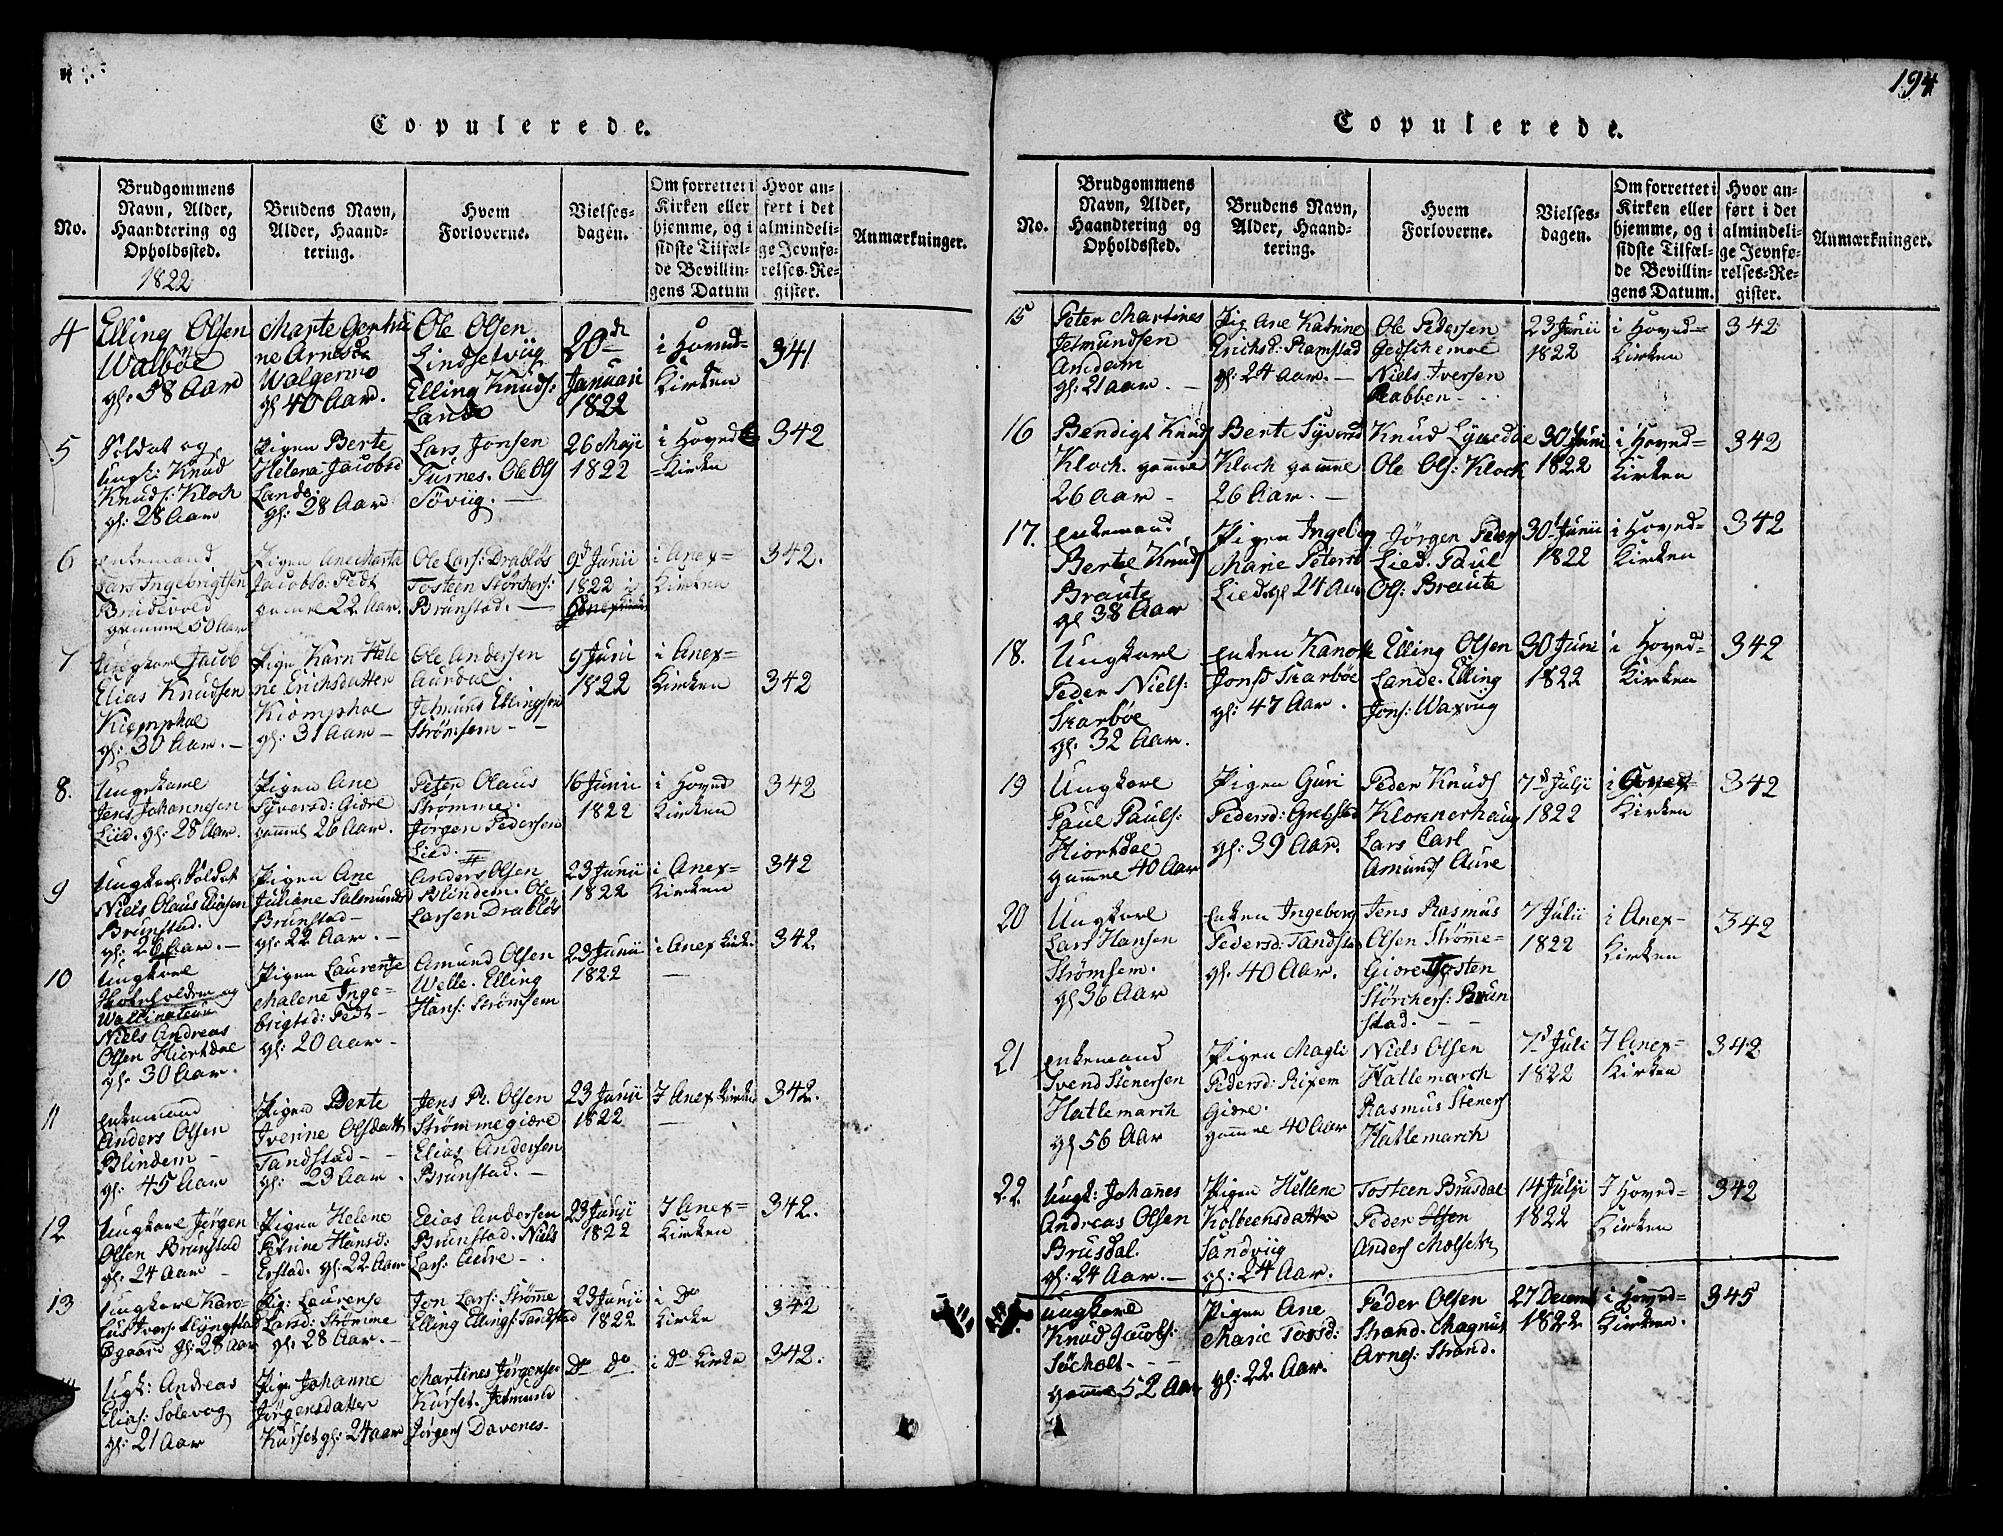 194
Copulerede.
No.
Brudgommens
Navn, Alder,
Haandtering og
Opholdssted.
1822
Brudens Navn,
Alder, Haand-
tering.
Hvem
Forloverne.
Vielses-
dagen.
Om forrettet i
Kirken eller
hjemme, og i
sidste Tilfæl-
de Bevillin-
gens Datum
Hvor an-
ført i det
almindeli-
ge Jevnfø-
relses-Re-
gister.
Anmærkninger.
4
Elling Olsen
Walbøe
gl: 58 Aar
Marte Gertru
ne Arnesd.
Walgermo
gl 40 Aar.
Ole Olsen
Lindsetviig
Elling Knuds:
Lande
20de
Januari
1822
i Hoved=
Kirken
341
5
Soldat og
Ungk: Knud
Knuds: Kloch
gl: 28 Aar
Pigen Berte
Helena Jacobsd
Lande
gl: 28 Aar
Lars Jonsen
Turnes. Ole Ols
Søviig. —
26 Maji
1822
i Hoved
=Kirken
342
6
Enkemand
Lars Ingebrigtsen
Brudevold
gamme 50 Aar
Pigen Ane Marta
Jacobsd: Fedt
gamme 22 Aar.
Ole Lars: Drabløs
Tosteen Størchers:
Brunstad. —
9d Junii
1822
i Anex=
Kirken
342.
7
Ungkare Jacob
Elias Knudsen
Kiemphoe
gl: 30 Aar. —
Pigen Karn Hele
ne Erichsdatter
Kiomphoe
gl: 31 Aar —
Ole Andersen
Aurdal.
Jetmund Ellingsen
Strømsem - -
9 Junii
1822
i Anex=
Kirken
342
8.
Ungekarl
Jens Johannesen
Lied. gl: 28 Aar.
Pigen Ane
Syversd: Giære
gammel 26 Aar.
Peter Olaus
Strømme.
Jørgen Pedersen
Lied. —
16 Junii
1822
i Hoved
Kirken
342
9
Ungkarl: Soldat
Niels Olaus Eliasen
Brunstad.
gl: 26 Aar. —
Pigen Ane
Juliane Salmunds
Brunstad—
gl: 22 Aar. —
Anders Olsen
Blindem. Ole
Larsen Drabløs
23 Junii
1822
i Anex=
Kirken
342
10
Ungkarl
Niels Andreas
Olsen Hiortdal
gl. 30 Aar.
Pigen Laurentse
Malene Inge-
brigtsd: Fedt-
gl: 20 Aar—
Amund Olsen
Welle. Elling
Hans: Strømsem
23 Junii
1822
i Anex Kirke
—
342.
11
Enkemand
Anders Olsen
Blindem —
gl: 45 Aar
Pigen Berte
Iverine Olsdatt
Tandstad—
gl: 23 Aar.
Jens R. Olsen
Strømmegiære
Elias Andersen
Brunstad. —
23 Junii
1822
I Anex Kirken
—
342.
12
Ungkare Jørgen
Olsen Brunstad
gl: 24 Aar —
Pigen Helene
Petrine Hansd:
Erstad. gl: 22 Aar
Elias Andersen
Brunstad. Niels
Lars: Aure—
23 Junii
1822
I Anex=
Kirken
342.
13
Ungkare Karo-
lus Ivers: Flyngstad
Øgaard gl: 28 Aar
Pig: Laurense
Larsd: Strømme
gl: 28 Aar. —
Jon Lars: Strømme
Elling Ellings: Tandstad
23 Junii
1822
i Do
Kirke
342
Ungk: Andreas
Elias: Solevog
gl: 21 Aar
Pige Johanne
Jørgensdatter
Kurset gl: 24 aar
Martines Jørgense
Kurset. Jetmund
Jørgens Davenes-
Do Do
i Do Kirke
342.
Copulerede.
No.
Brudgommens
Navn, Alder,
Haandtering og
Opholdssted.
Brudens Navn,
Alder, Haand-
tering.
Hvem
Forloverne.
Vielses-
dagen.
Om forrettet i
Kirken eller
hjemme, og i
sidste Tilfæl-
de Bevillin-
gens Datum.
Hvor an-
ført i det
almindeli-
ge Jevnfø-
relses-Re-
gister.
Anmærkninger.
15
Peter Martines
Jetmundsen
Amdam
gl: 21 aar. —
Pig Ane Katrine
Erichsd: Ramstad
gl: 24 Aar. —
Ole Pedersen
Gedschemoe
Niels Iversen
Rabben - - -
23 Junii
1822
i Hoved=
Kirken
342
16
Bendigt Knuds
Kloch. gamme
26 Aar —
Berte Syversd
Kloch gamme
26 Aar. —
Knud
Ole Ols: Kloch
30 Juni
1822
i Hoved=
Kirken
342
17.
Enkemand
Bertel Knuds
Braute
gl 38 Aar
Pigen Ingebor
Marie Petersd
Lied. gl 24 Aar
Jørgen Peders
Lied. Paul
Ols: Braute
30d Junii
1822
i Hoved=
Kirken
342
18.
Ungkare
Peder Niels:
Skarbøe
gl: 32 Aar.
Enken Kanot
Jonsd Skarbøe
gl: 47 Aar.
Elling Olsen
Lande. Elling
Jons: Waxviig
30 Juni
1822
i Hoved=
Kirken
342
19
Ungkare
Paul Pauls:
Hiortdal
gamme 40 Aar
Pigen Guri
Pedersd: Grebstad
gl: 39 Aar.
Peder Knuds
Klokkerhaug
Lars Carl
Amunds Aure
7d Julji
1822
i
Kirken
342
20
Ungkare
Lars Hansen
Strømsem.
gl 36 Aar
Enken Ingeborg
Pedersd: Tandstad
gl: 40 Aar.
Jens Rasmus
Olsen Strømme-
Giære Tosten
Størchers: Brun
stad. — —
7 Julii
1822
i Anex-
Kirken
342
21
Enkemand
Svend Stenersen
Hatlemarch
gl 56 Aar
Pigen Magli
Pedersd: Rixem
Giære.
gamme 40 Aar
Niels Olsen
Hatlemarch
Rasmus Steners
Hatlemarch
7d Juli
1822
I Anex=
Kirken
342
22
Ungk: Johannes
Andreas Olsen
Brusdal.
gl: 24 Aar. —
Pigen Hellene
Kolbeensdatter
Sandviig
gl: 24 Aar.
Tosteen Brusdal
Peder Olsen
Anders Molsetr
14 Julji
1822
I Hoved=
Kirken
342
Ungkare
Knud Jacobs:
Søcholt. - -
gamme 52 Aar
Pigen Ane
Marie Torsd:
gl: 22 Aar.
Peder Olsen
Strand. Magnus
Arnes: Strand.
27 Decemb
1822
i Hoved=
Kirken.
345